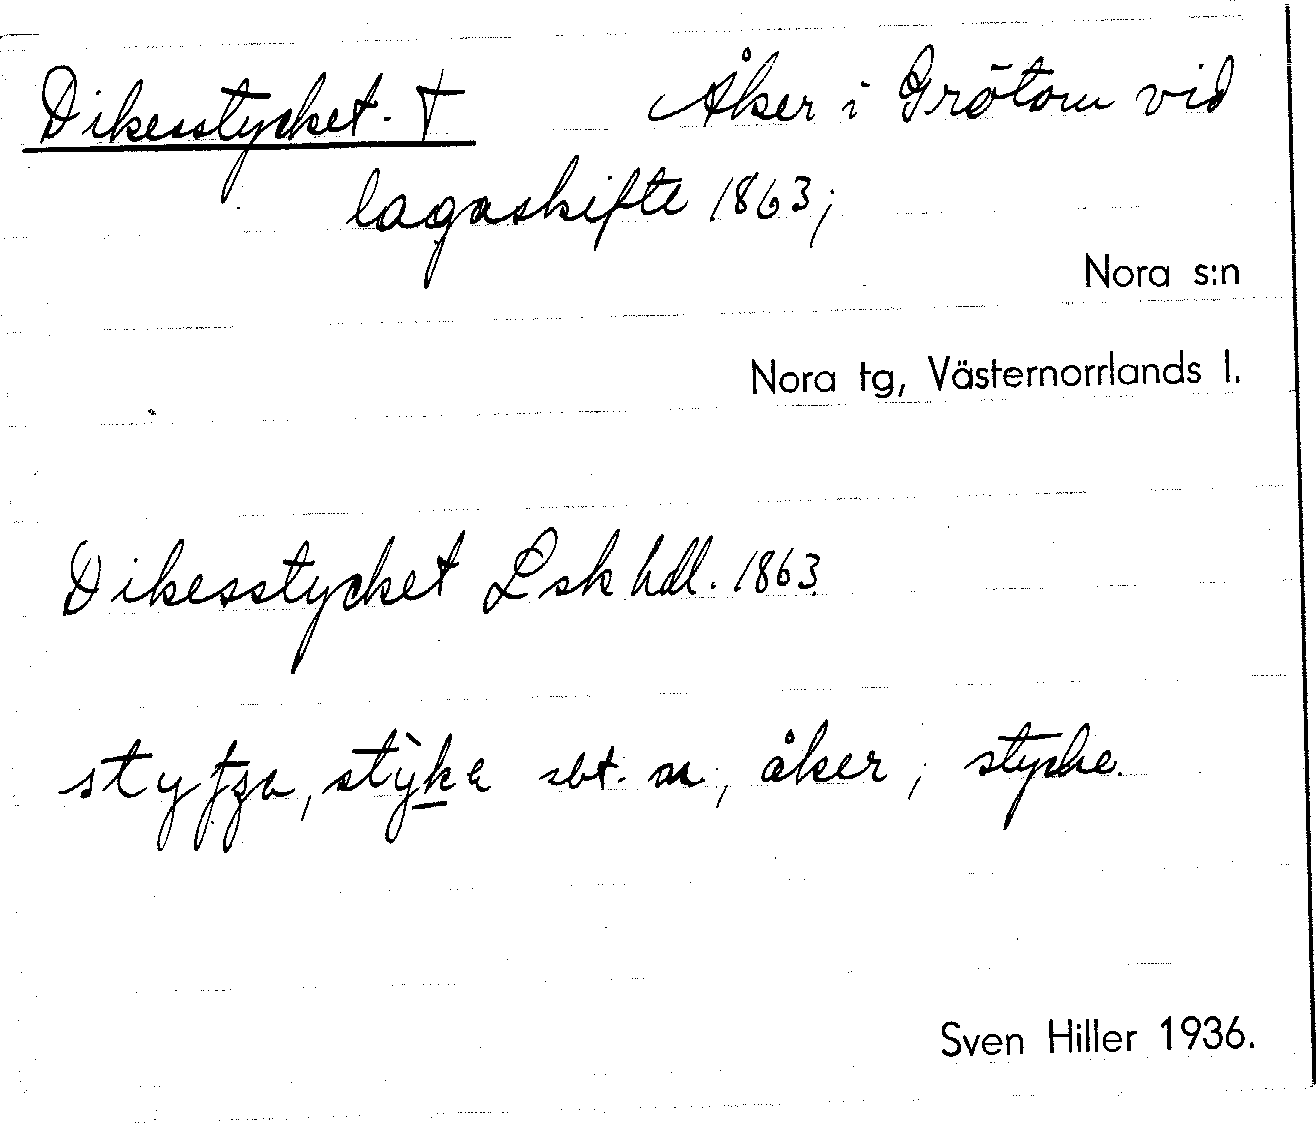 Dikesstycket. † Åker i Grötom vid
lagaskifte 1863;
Nora s:n
Nora tg, Västernorrlands l.
Dikesstycket Lsk hdl. 1863
sbt. n, åker; stycke.
Sven Hiller 1936.